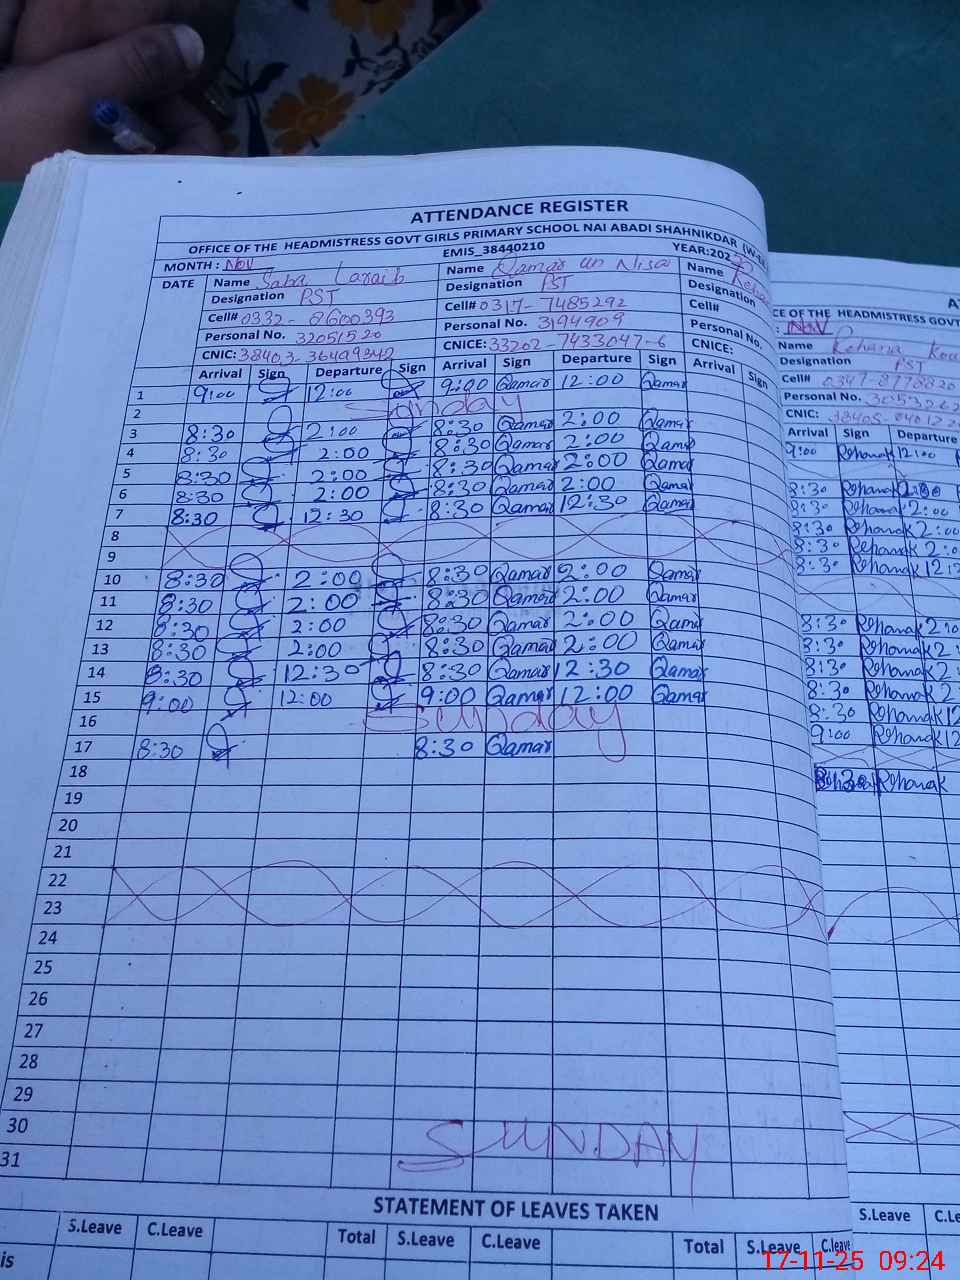 ATTENDANCE REGISTER
OFFICE OF THE HEADMISTRESS GOVT GIRLS PRIMARY SCHOOL NAI ABADI SHAHNIKDAR
MONTH : Nov EMIS_38440210 YEAR:202
DATE Name Saba Laraib Name Qamar un Nisa Name
Designation PST Designation PST Designation
Cell# 0332-8600393 Cell# 0317-7485292 Cell#
Personal No. 32051520 Personal No. 3194909 Personal No.
CNIC: 38403- CNICE: 33202-7433047-6 CNICE:
Arrival Sign Departure Sign Arrival Sign Departure Sign Arrival Sign
1 9:00 12:00 9:00 Qamar 12:00 Qamar
2 Sunday
3 8:30 2:00 8:30 Qamar 2:00 Qamar
4 8:30 2:00 8:30 Qamar 2:00 Qamar
5 8:30 2:00 8:30 Qamar 2:00 Qamar
6 8:30 2:00 8:30 Qamar 2:00 Qamar
7 8:30 12:30 8:30 Qamar 12:30 Qamar
8
9
10 8:30 2:00 8:30 Qamar 2:00 Qamar
11 8:30 2:00 8:30 Qamar 2:00 Qamar
12 8:30 2:00 8:30 Qamar 2:00 Qamar
13 8:30 2:00 8:30 Qamar 2:00 Qamar
14 8:30 12:30 8:30 Qamar 12:30 Qamar
15 9:00 12:00 9:00 Qamar 12:00 Qamar
16 Sunday
17 8:30 8:30 Qamar
18
19
20
21
22
23
24
25
26
27
28
29
30 SUNDAY
31
STATEMENT OF LEAVES TAKEN
S.Leave C.Leave Total S.Leave C.Leave Total S.Leave C.Leave
is
CE OF THE HEADMISTRESS GOVT
: Nov
Name Rehana
Designation PST
Cell# 0347-8778820
Personal No.
CNIC:
Arrival Sign Departure
9:00 Rehanak 12:00
8:30 Rehanak
8:30 Rehanak 2:00
8:30 Rehanak 2:00
8:30 Rehanak 2:0
8:30 Rehanak 12
8:30 Rehanak 2:0
8:30 Rehanak 2:
8:30 Rehanak 2
8:30 Rehanak 2
8:30 Rehanak 12
9:00 Rehanak 12
8:30 Rehanak
S.Leave
17-11-25 09:24